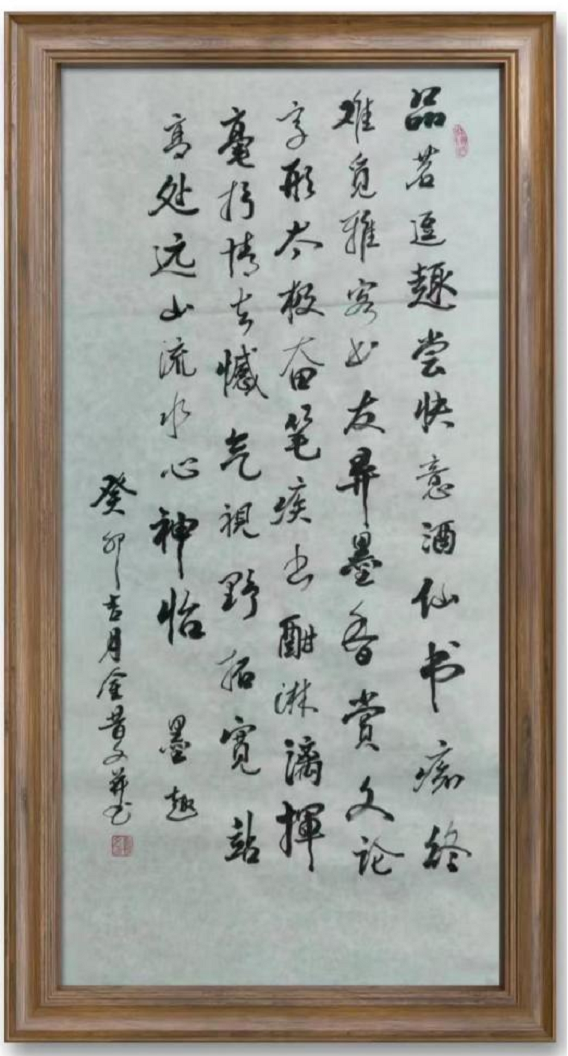 品茗逗趣尝快意酒仙书痴终
难觅雅客书友弄墨香赏文论
字形太极奋笔疾书酣淋漓揮
毫抒情去憾气視野拓宽站
高处远山流水心神怡 墨趣
癸卯吉月金昔文并书